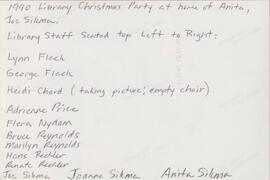 1990 Library Christmas Party at home of Anita,
Joe Sikma.
Library Staff Seated top Left to Right:
Lynn Flach
George Flach
Heidi Chord (taking picture; empty chair)
Adrienne Price
Flora Nydam
Bruce Reynolds
Marilyn Reynolds
Hans Rechler
Renate Rechler
Joe Sikma Joanne Sikma Anita Sikma